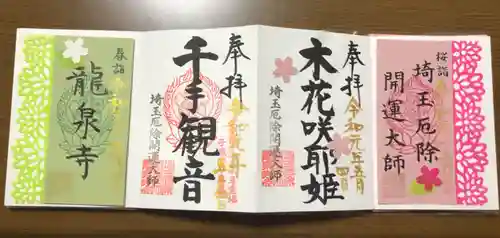 桜詣
埼玉厄除
開運大師
奉拝
木花咲耶姫
令和元年五月
四日
埼玉厄除開運大師
奉拝
千手観音
令和元年
埼玉厄除開運大師
春詣
龍泉寺